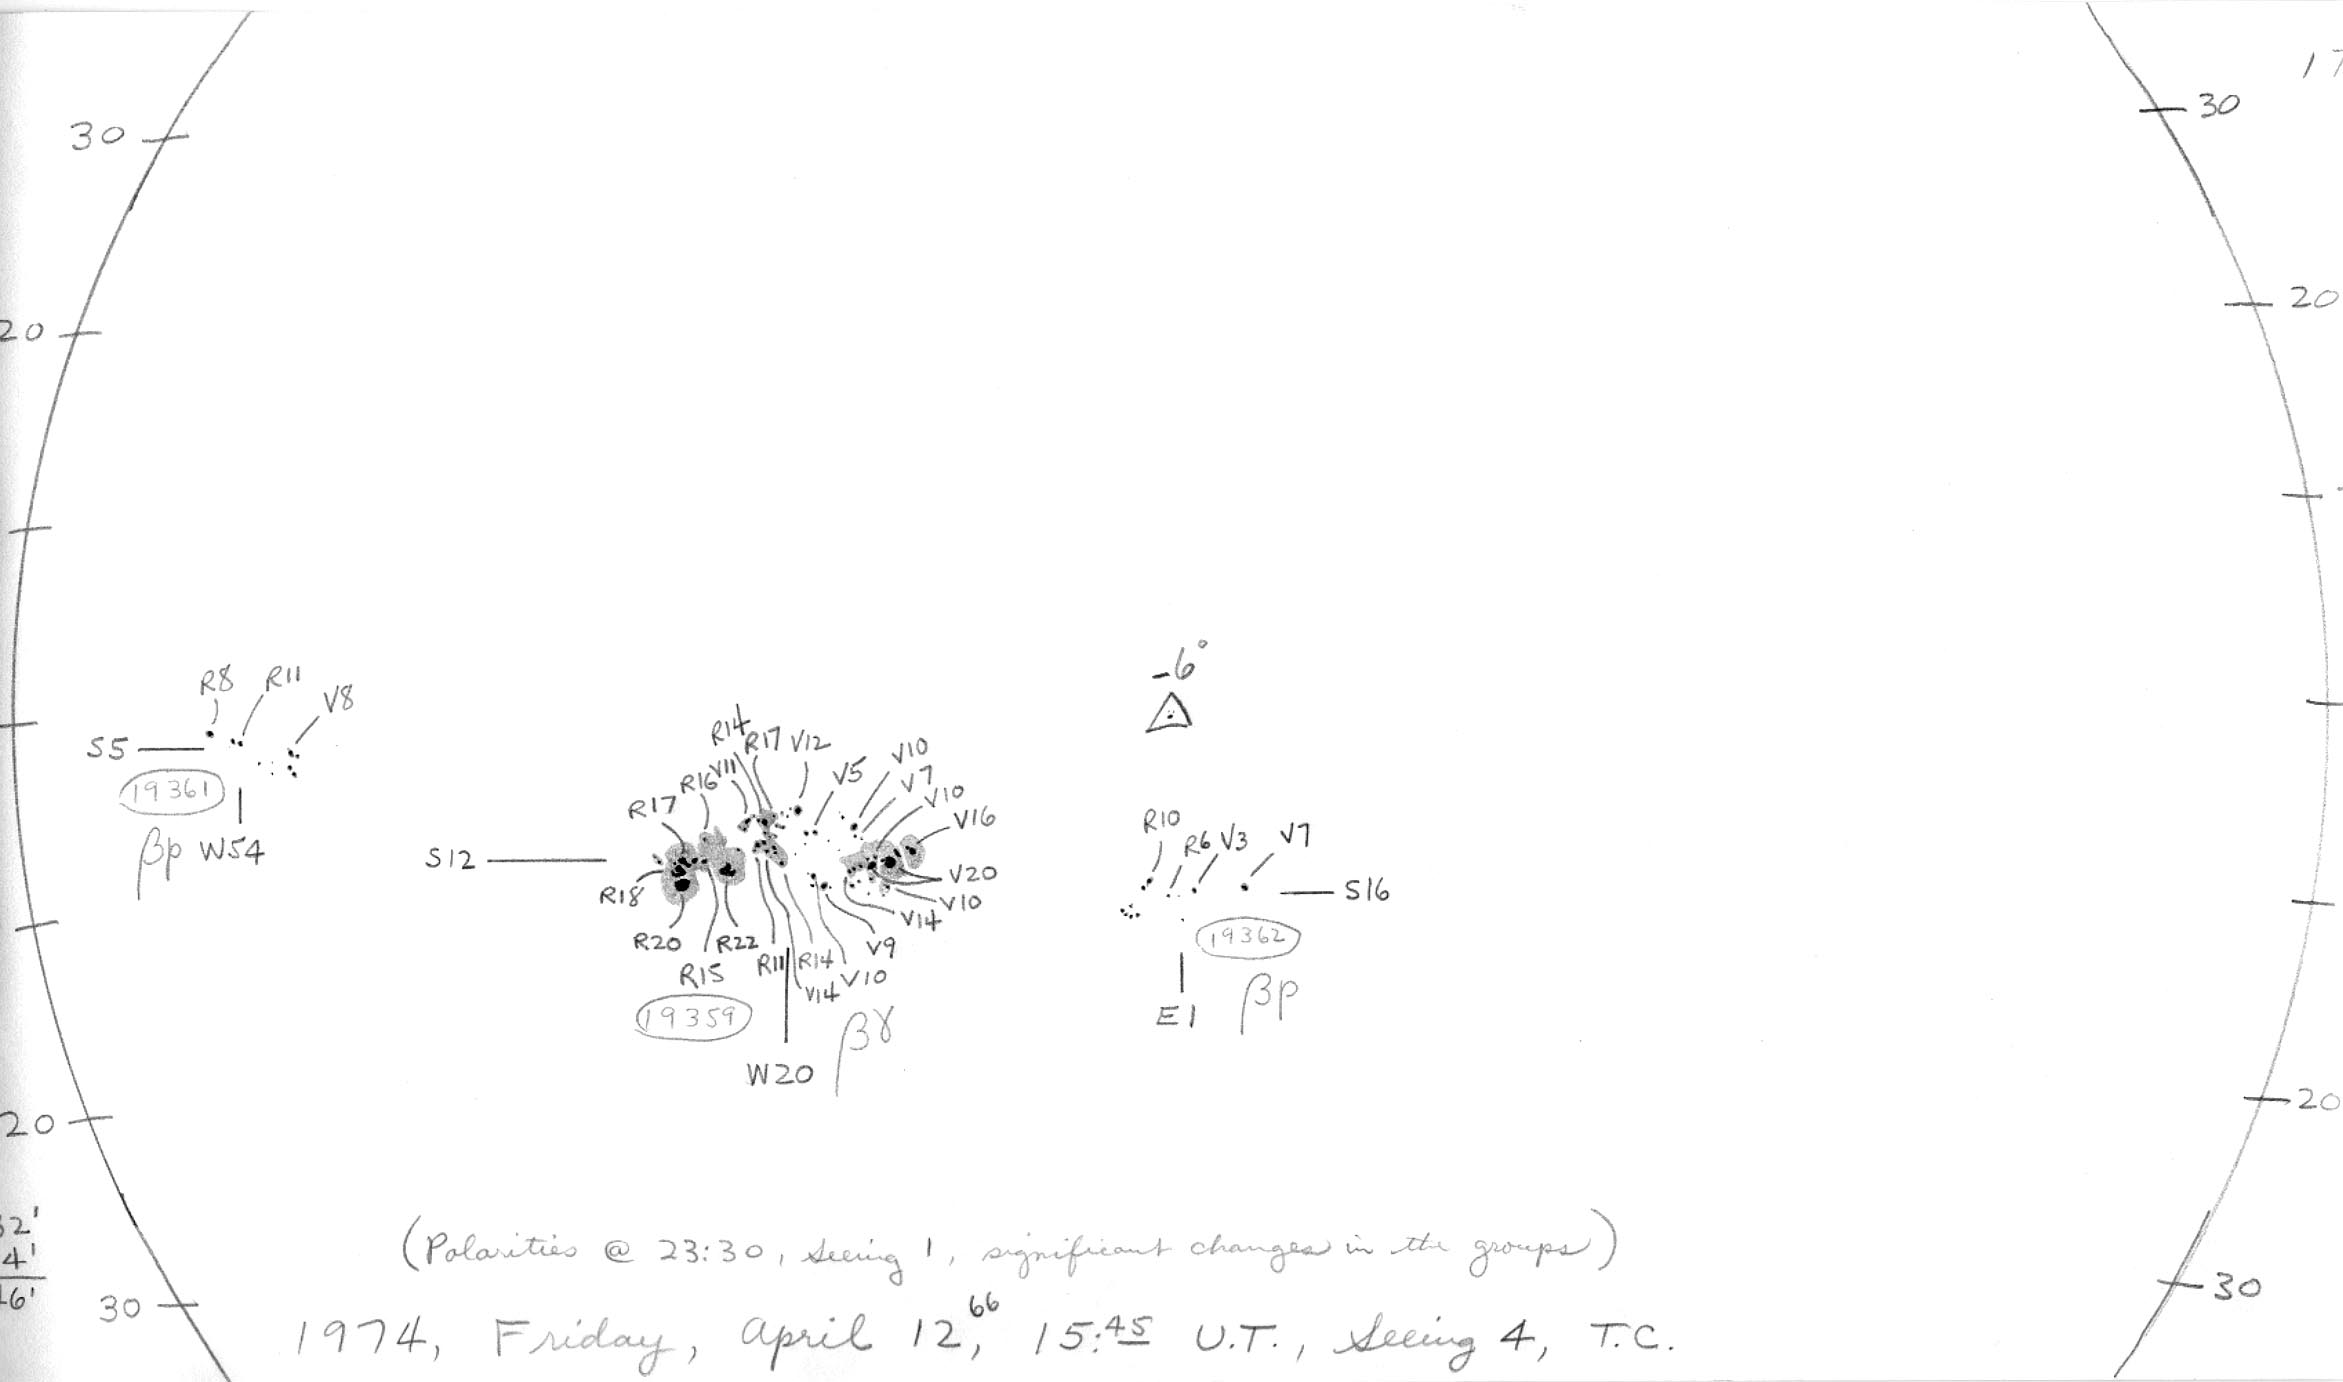 17
30
30
20
20
-6°
R8 R11 V8
S5
19361
βp W54
R14 R17 V12 V10
R16 V11 V5 V7
R17 V10
V16
S12
R18
V20
V10
V14
R20 R15 R22 R11 R14 V14 V10 V9
19359
βγ
W20
R10 R6 V3 V7
S16
19362
E1 βp
20
20
32'
4'
16'
30
30
(Polarities @ 23:30, seeing 1, significant changes in the groups)
1974, Friday, April 12,66 15:45 U.T., Seeing 4, T.C.